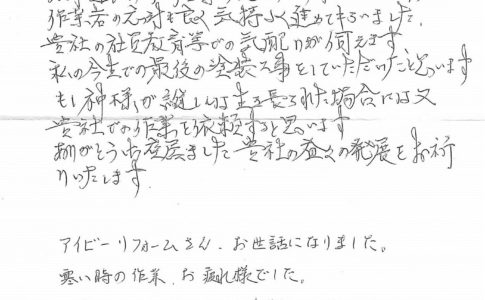 作業者の応対も良く気持よく進めてもらいました。
貴社の社員教育等での気配りが伺えます
私の今生での最後の塗装工事をしていただいたこと思います
もし神様が越しんは生を長らえた場合には又
貴社での作業を依頼すると思います
ありがとう御座居ました貴社の益々の発展をお祈
りいたします。
アイビーリフォームさん、お世話になりました。
寒い時の作業、お疲れ様でした。